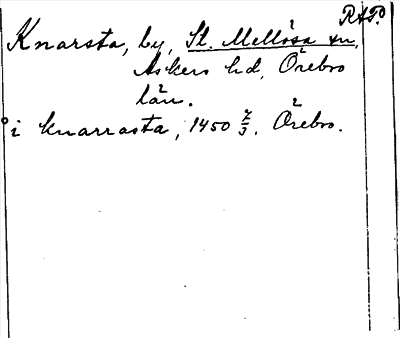 RAP.
Knarsta, by, St. Mellösa sn,
Askers hd, Örebro
län.
i knarrasta, 1450 7/3. Örebro.